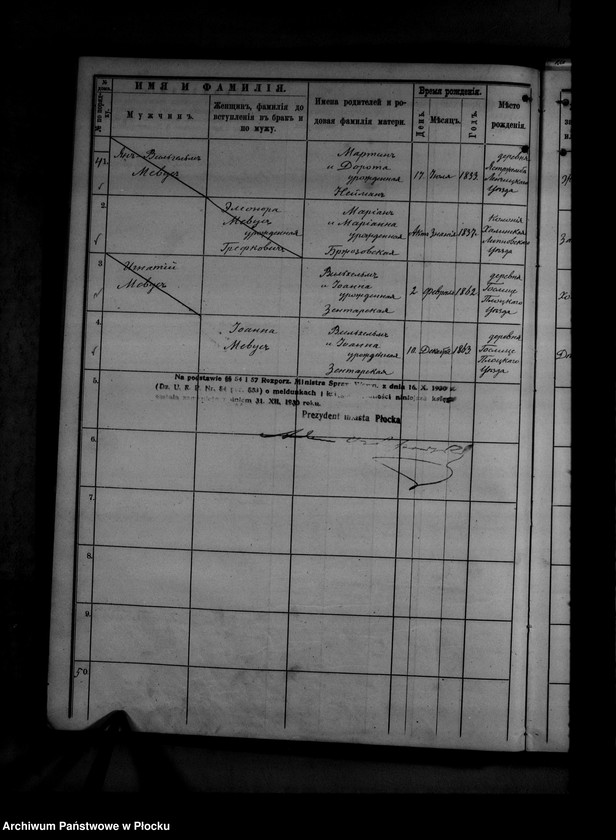 № дома.
№ по порядку.
ИМЯ И ФАМИЛІЯ.
Мужчинъ.
Женщинъ, фамилія до
вступленія въ бракъ и
по мужу.
Имена родителей и ро-
довая фамилія матери.
Время рожденія.
День.
Мѣсяцъ.
Годъ.
Мѣсто
рожденія.
Вильгельмъ
Мевусъ
Мартинъ
и Дорота
урожденная
Нейманъ
17
Іюля
1833
деревня
уѣзда
2.
Элеонора
Мевусъ
урожденная
Маріанъ
и Маріанна
урожденная
Бржозовская
1837
Колонія
Липновскаго
уѣзда
3
Игнатій
Мевусъ
Вильгельмъ
и Іоанна
урожденная
Зентарская
2
февраля
1862
деревня
Плоцкаго
уѣзда
4.
Іоанна
Мевусъ
Вильгельмъ
и Іоанна
урожденная
Зентарская
10
Декабря
1863
деревня
Плоцкаго
уѣзда
5.
Na podstawie §§ 54 i 57 Rozporz. Ministra Spraw z dnia 16. X. 1930 r.
(Dz. U. R. P. Nr. 84 653) o meldunkach i księgi
dniem 31. XII. 1930 roku.
Prezydent miasta Płocka
6.
7.
8.
9.
10
Archiwum Państwowe w Płocku